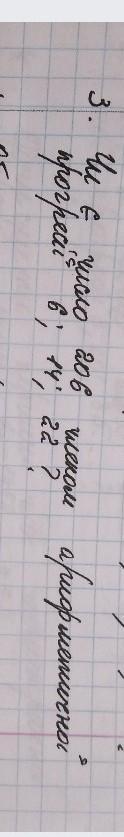 3. Чи є число 206 членом арифметичної
прогресії 6; 14; 22?